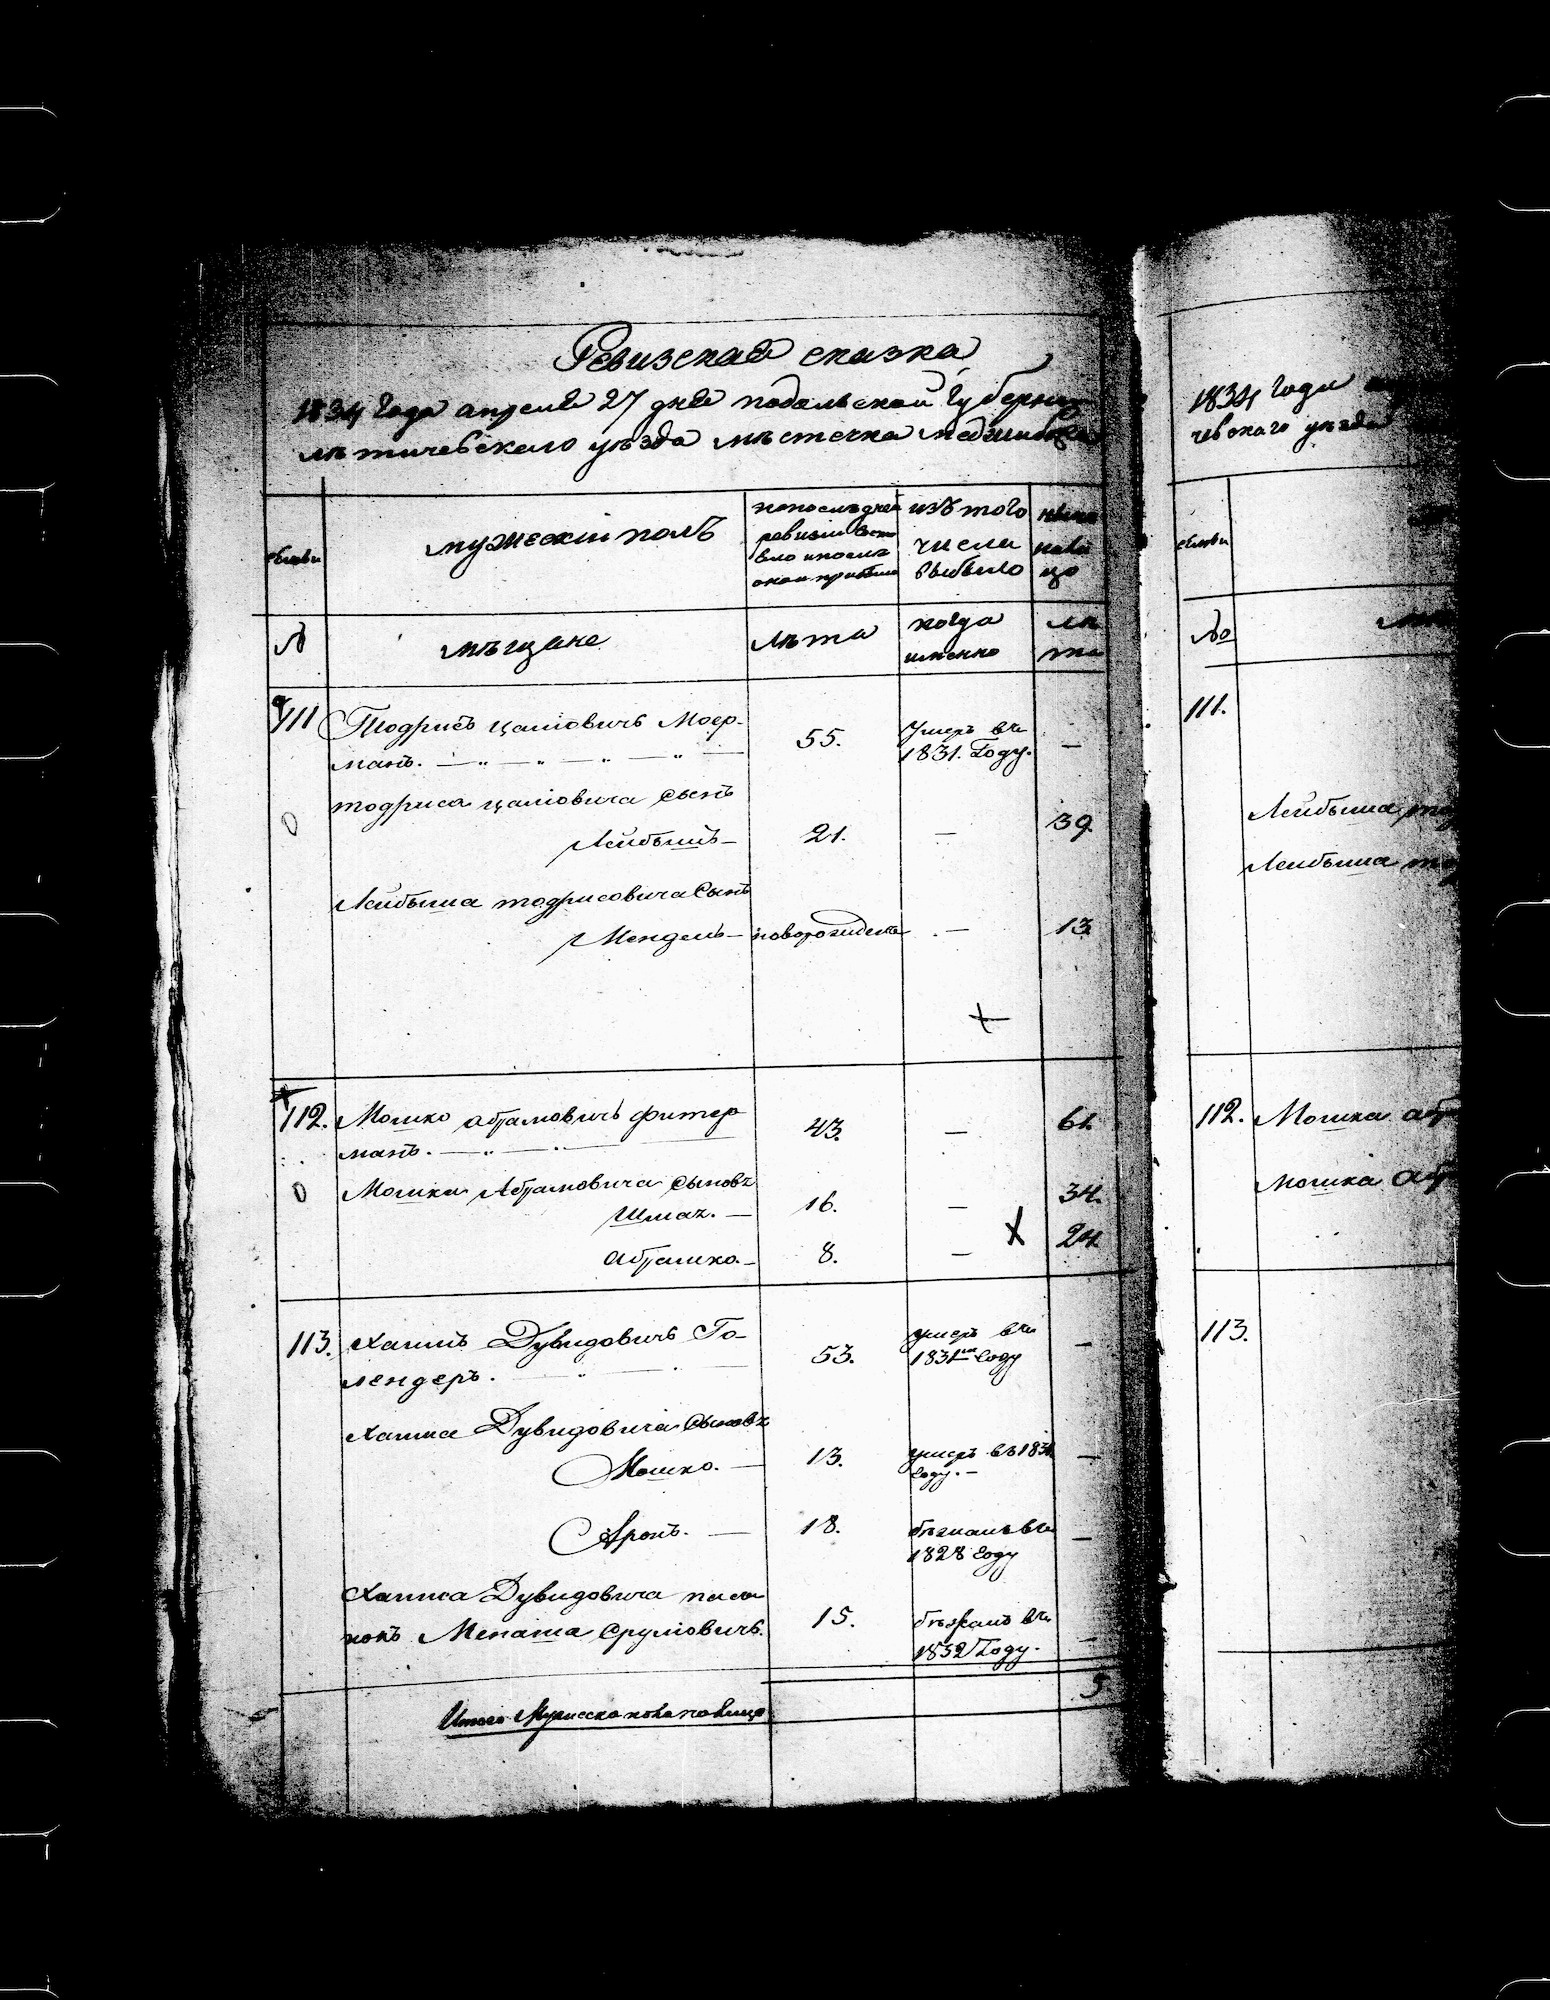 Ревизская сказка
1834 года апреля 27 дня подольской губернии
лѣтичевскаго уѣзда мѣстечка меджибожа
семьи
мужескій полъ
по последней
ревизіи состо
яло и после
оной прибыло
изъ того
числа
выбыло
ныне
на ли
цо
№
мѣщане
лѣта
когда
именно
лѣ
та
111
Тодрисъ цаліовичъ Моер-
манъ. — „ — „ — „ — „ —
55.
Умеръ въ
1831. Году.
—
тодриса цаліовича сынъ
Лейбышъ —
21.
—
39.
Лейбыша тодрисовича Сынъ
Мендель —
новорожденъ
—
13
112.
Мошко абрамовичъ фитер
манъ. — „ — „ —
43.
—
61.
Мошка Абрамовича сыновъ
Шмаъ. —
16.
—
34.
абрашко. —
8.
—
24
113.
Хаимъ Дувидовичъ Го-
лендеръ.
53.
умеръ въ
1831мъ Году
—
Хаима Дувидовича сыновъ
Мошко. —
13.
умеръ въ 1831
Году. —
—
Аронъ. —
18.
бѣжалъ въ
1828 Году
—
Хаима Дувидовича пасы
нокъ Менаша Сруліовичъ.
15.
бѣжалъ въ
1832 Году.
—
Итого Мужеска пола налицо
5
1834 Года
чевскаго уѣзда
семьи
№
111.
Лейбыша
Лейбыша
112.
Мошка аб
Мошка аб
113.